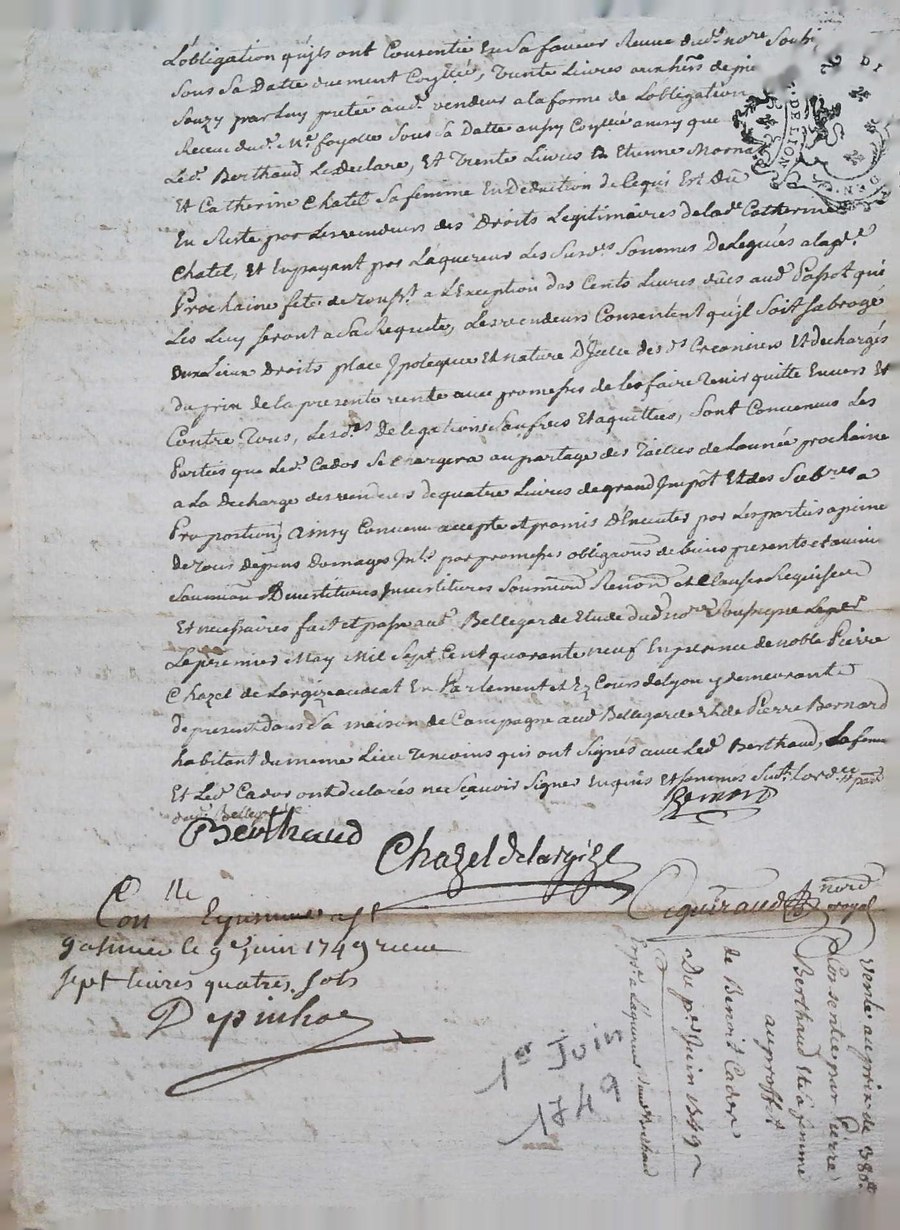 L'obligation qu'jls ont Consentie En Sa faveur Receue dud.t no.re Soub
Sous Sa Datte duement Con.llée, Trente Livres aux hers de pie
Souzy par Luy pretée aud. vendeur a la forme de L'obligation
Receue dud. M.e fayolle Sous Sa Datte aussy Con.llée ainsy que
Led. Berthaud Le declare, Et Trente Livres Etienne Morna
Et Catherine Chatel Sa femme En Deduction de Ce qui Est Dû
En Reste par Les vendeurs des Droits Legitimaires de lad.e Catherine
Chatel, Et En payant par L'aquereur Les Susd.es Sommes Deleguées a la
Prochaine fête de Touss.t a L'Exception des Cents Livres dües aud. Papot qui
Les Luy feront a Sa Requete, Les vendeurs Consentent qu'jl Soit Subrogé
aux Lieux Droits place Jpoteque Et nature D'Jcelle des d.s Creanciers Et dechargés
du prix de la presente vente avec promesses de les faire Tenir quitte Envers Et
Contre Tous, Les d.es Delegations Soufries Et aquittées, Sont Convenus Les
Parties que Led. Cador Se Chargera au partage des Tailles de L'année prochaine
a La Decharge des vendeurs de quatre Livres de grand Jmpôt Et des Sub.res a
Proportion, ainsy Convenu accepté et promis D'Executer par Les parties a peine
de Tous depens Domages Jnt.s par promesses obligaons de biens presents et avenir
Soumi.ons Devestitures Jnvestitures Soumi.ons Renon.ons et Clauses Requises
Et necessaires fait et passé aud. Bellegarde Etude dud. no.re
Le premier May Mil Sept Cent quarante neuf En presence de noble Pierre
Chazel de Largize avocat En Parlement et Ez Cours de Lyon y demeurant
De present Dans Sa maison de Campagne aud. Bellegarde Et de Pierre Bernard
habitant du meme Lieu Temoins qui ont Signés avec Led. Berthaud, La femme
Et Led. Cador ont declarés ne Sçavoir Signer Enquis Et Sommés
Bernard
Berthaud
Chazel de largize
Con.lle
Ciguiraud
nord
royal
le 9e juin 1749 receu
Sept livres quatres Sols
Depinhac
1er Juin
1749
Vente au prix de 380.lt
Consentie par Pierre
Berthaud Et Sa femme
au proffit
de Benoit Cador
Du p.r Juin 1749
Exp.e a L'aquereur
DELION